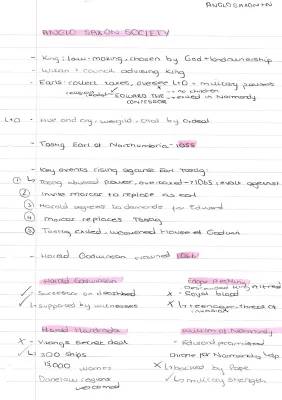 ANGLO SAXON + N
ANGLO SAXON SOCIETY
- King; law-making, chosen by God + landownership
- Witan + council advising king
- Earls; collect taxes, oversee L+O + military powers
EDWARD THE CONFESSOR
- no children
- exiled in Normandy
L+O - Hue and cry, wergild, trial by ordeal
- Tostig Earl of Northumbria - 1055
- Key events rising against Earl Tostig:
① Tostig abused power, over taxed → 1065 revolt against
② Invite morcar to replace his seat
③ Harold agrees to demands for Edward
④ morcar replaces Tostig
⑤ Tostig exiled, weakened House of Godwin
- Harold Godwinson crowned 1066
Harold Godwinson
✓ Succession on deathbed
✓ ↳ supported by witnesses
Edgar Aetheling
X - Royal blood
X ↳ teenager - threat of invasion
Harald Hardrada
X - Vikings secret deal
✓ ↳ 300 ships
15,000 warriors
Danelaw regions welcomed
William of Normandy
- Edward promised throne for Normandy help
X ↳ backed by Pope
✓ ↳ military strength